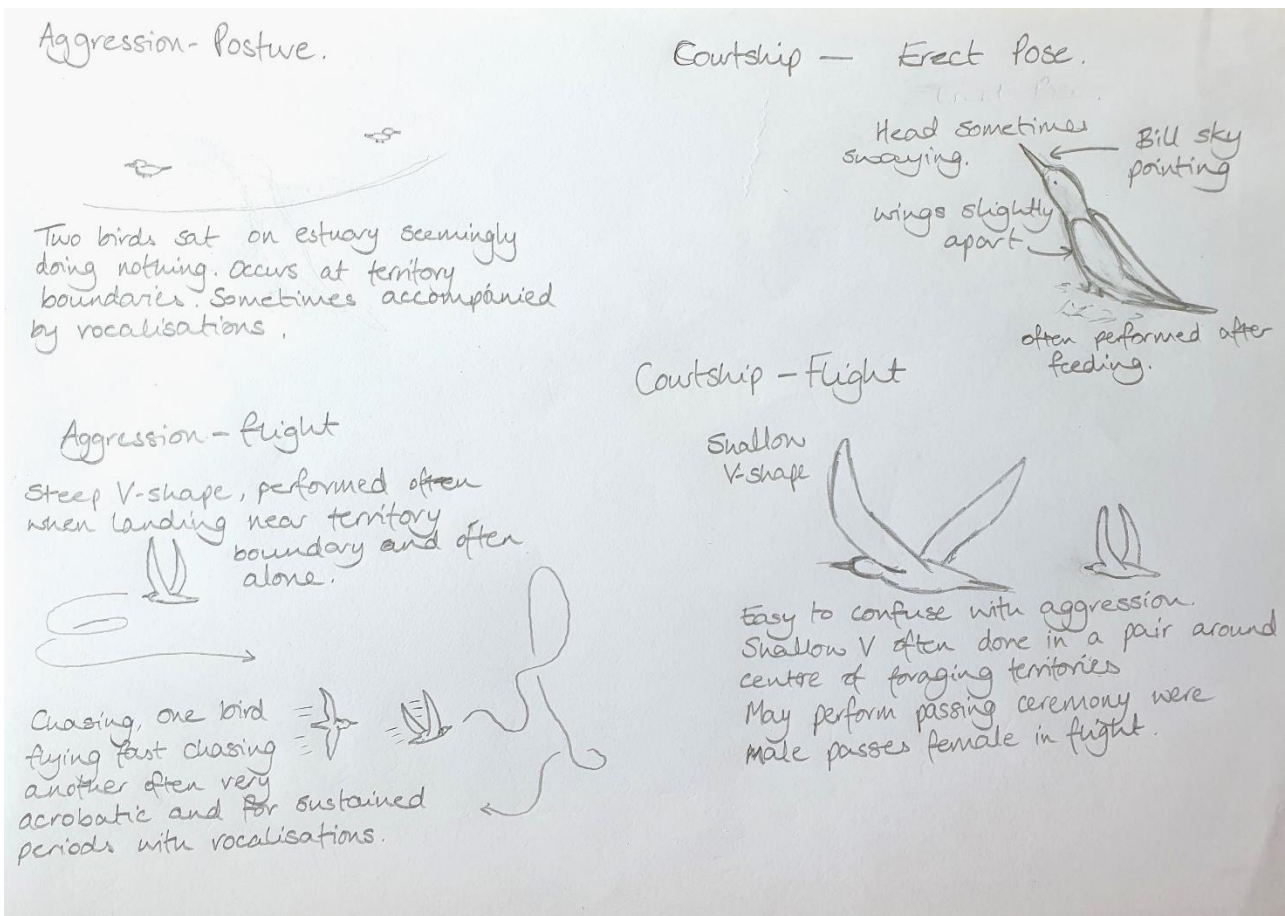 Aggression - Posture.
Two birds sat on estuary seemingly
doing nothing. Occurs at territory
boundaries. Sometimes accompanied
by vocalisations.
Aggression - flight
Steep V-shape, performed often
when landing near territory
boundary and often
alone.
Chasing, one bird
flying fast chasing
another often very
acrobatic and for sustained
periods with vocalisations.
Courtship — Erect Pose.
Head sometimes
swaying.
Bill sky
pointing
wings slightly
apart
often performed after
feeding.
Courtship - Flight
Shallow
V-shape
Easy to confuse with aggression.
Shallow V often done in a pair around
centre of foraging territories
May perform passing ceremony were
male passes female in flight.